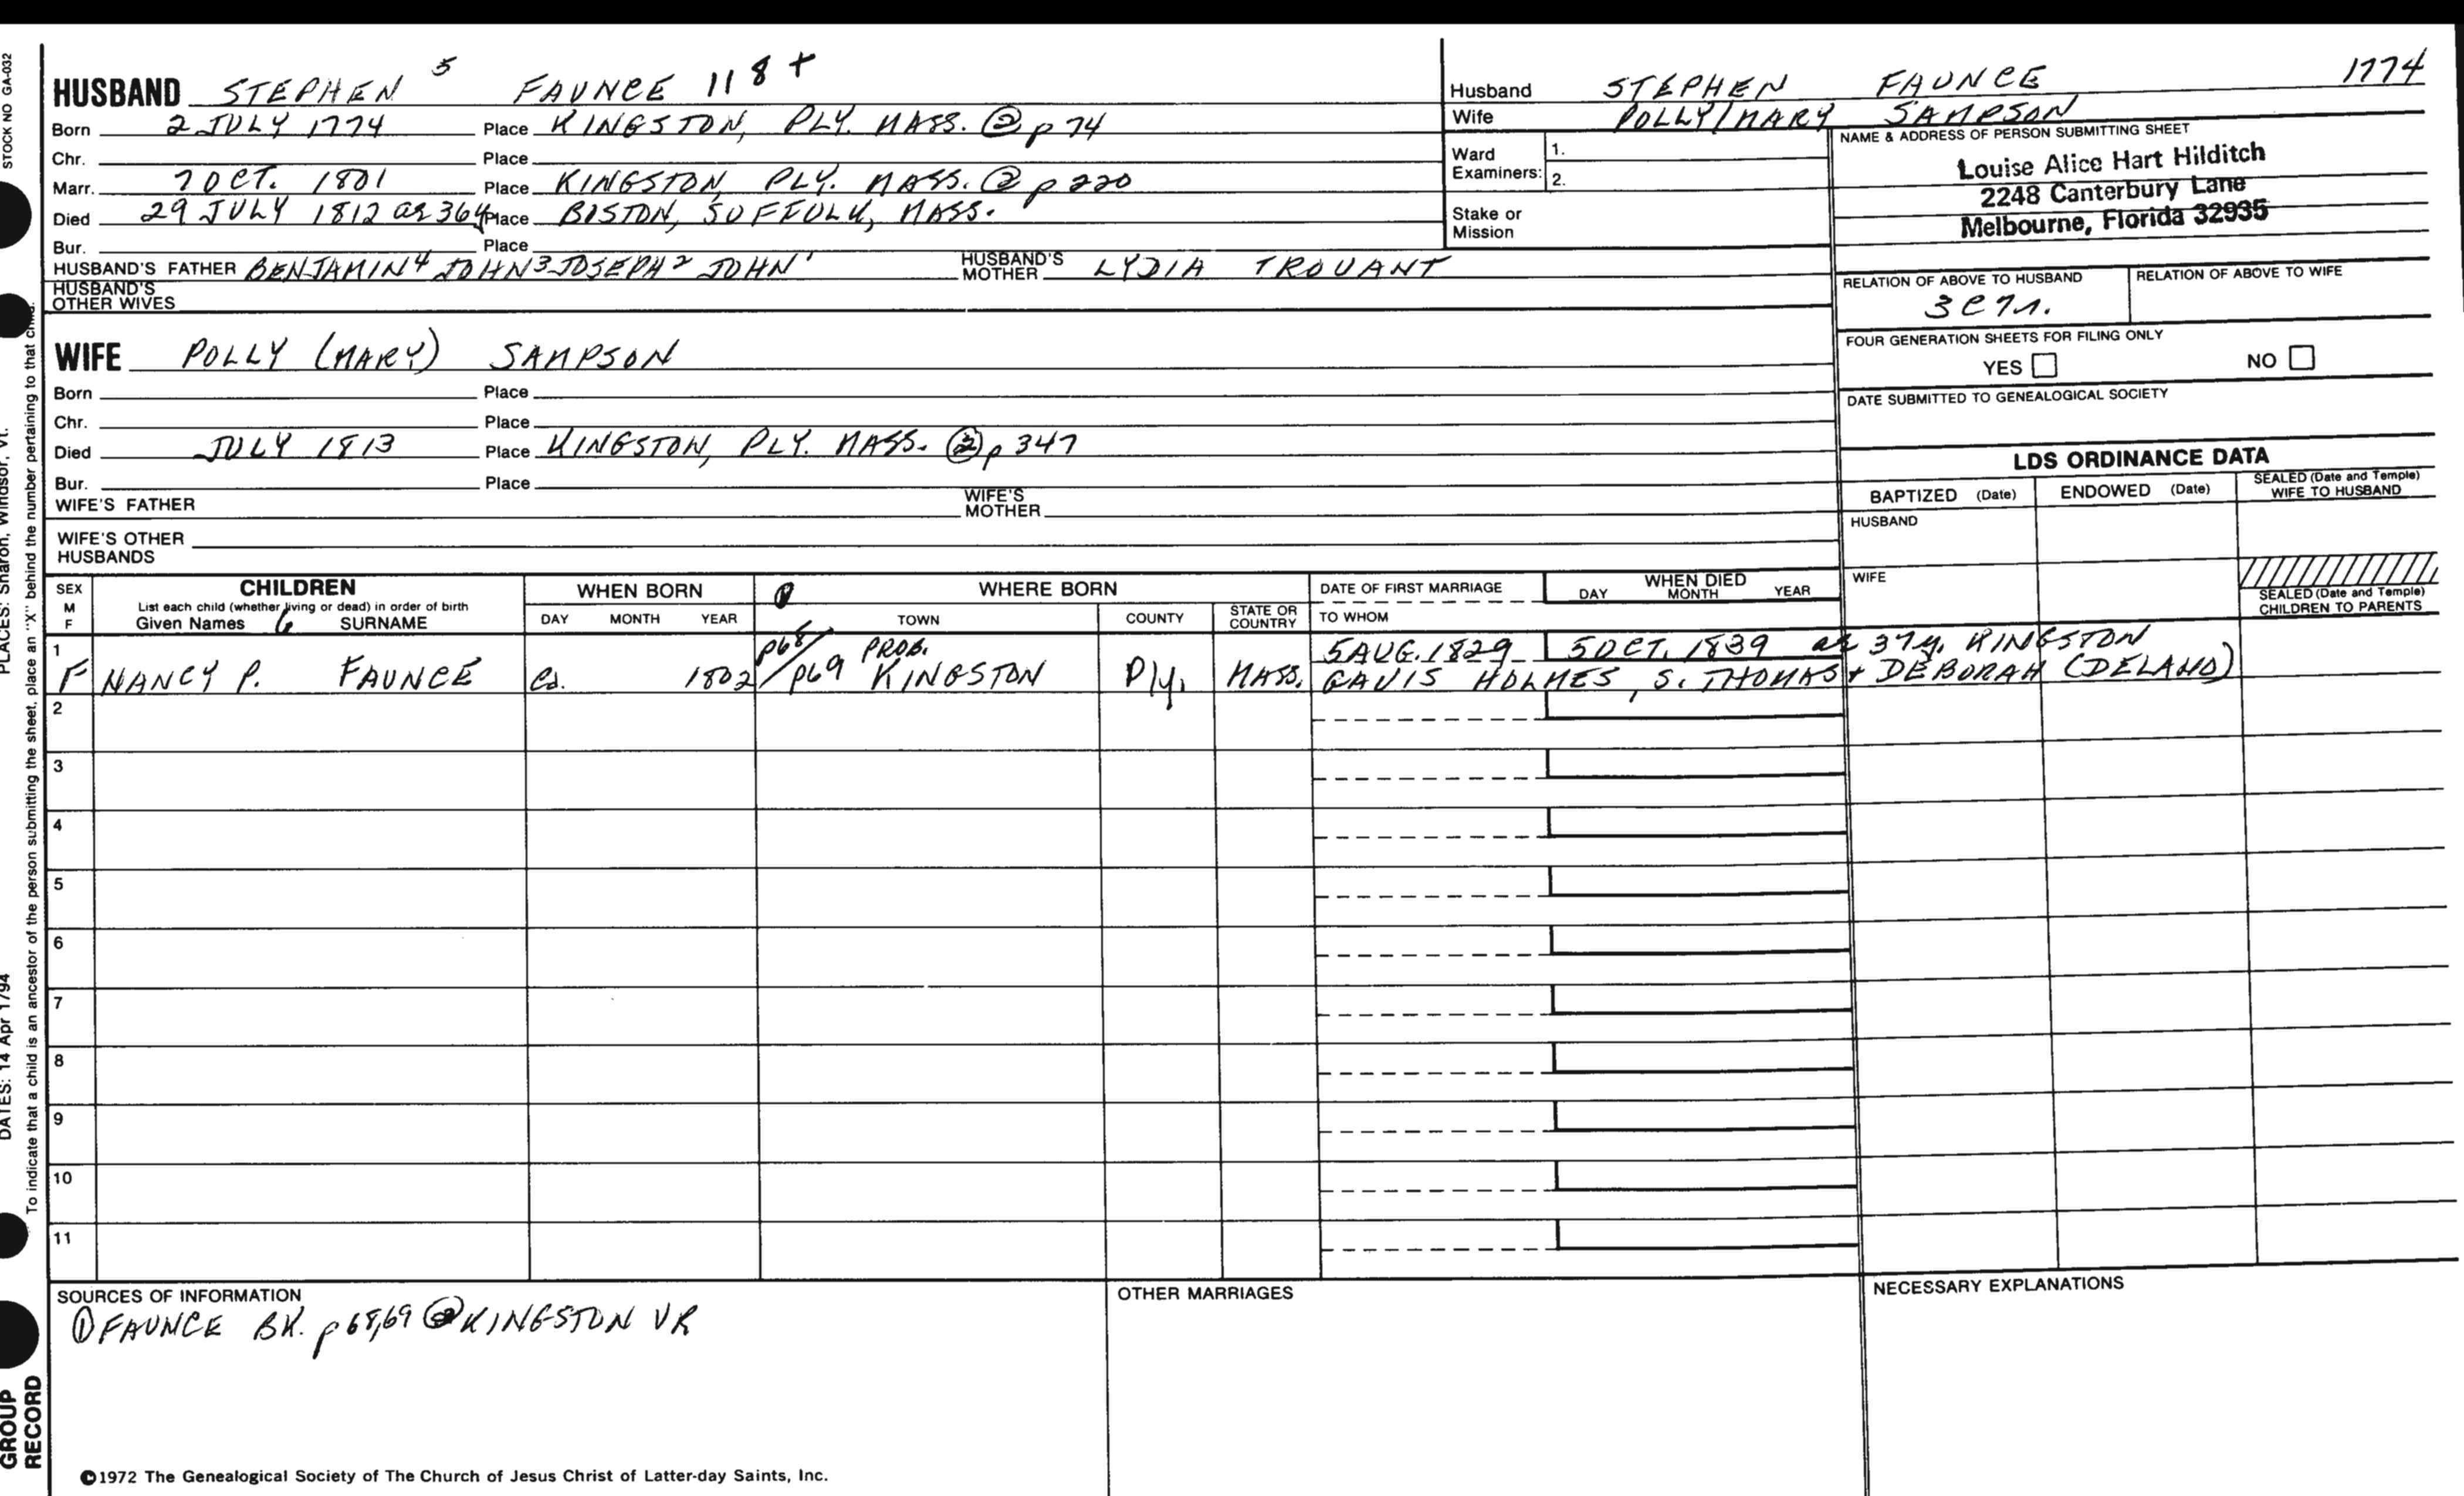 STOCK NO GA-032
HUSBAND STEPHEN 5 FAUNCE 118+
Born 2 JULY 1774 Place KINGSTON, PLY. MASS. ② p 74
Chr. Place
Marr. 7 OCT. 1801 Place KINGSTON PLY. MASS. ② p 220
Died 29 JULY 1812 ae 36y Place BOSTON, SUFFOLK, MASS.
Bur. Place
HUSBAND'S FATHER BENJAMIN4 JOHN3 JOSEPH2 JOHN1 HUSBAND'S MOTHER LYDIA TROUANT
HUSBAND'S OTHER WIVES
WIFE POLLY (MARY) SAMPSON
Born Place
Chr. Place
Died JULY 1813 Place KINGSTON, PLY. MASS. ② p 347
Bur. Place
WIFE'S FATHER WIFE'S MOTHER
WIFE'S OTHER HUSBANDS
Husband STEPHEN FAUNCE 1774
Wife POLLY/MARY SAMPSON
Ward Examiners: 1.
2.
Stake or Mission
NAME & ADDRESS OF PERSON SUBMITTING SHEET
Louise Alice Hart Hilditch
2248 Canterbury Lane
Melbourne, Florida 32935
RELATION OF ABOVE TO HUSBAND RELATION OF ABOVE TO WIFE
FOUR GENERATION SHEETS FOR FILING ONLY
YES NO
DATE SUBMITTED TO GENEALOGICAL SOCIETY
LDS ORDINANCE DATA
BAPTIZED (Date) ENDOWED (Date) SEALED (Date and Temple) WIFE TO HUSBAND
HUSBAND
WIFE
SEALED (Date and Temple) CHILDREN TO PARENTS
SEX M F
CHILDREN
List each child (whether living or dead) in order of birth
Given Names 6 SURNAME
WHEN BORN
DAY MONTH YEAR
① WHERE BORN
TOWN COUNTY STATE OR COUNTRY
DATE OF FIRST MARRIAGE
TO WHOM
WHEN DIED
DAY MONTH YEAR
1 p68/ PROB. 5 AUG. 1829 5 OCT. 1839 ae 37y. KINGSTON
F NANCY P. FAUNCE ca. 1802 p69 KINGSTON Ply. MASS. GAVIS HOLMES, S. THOMAS + DEBORAH (DELANO)
2
3
4
5
6
7
8
9
10
11
SOURCES OF INFORMATION
① FAUNCE BK. p 68,69 ② KINGSTON VR
OTHER MARRIAGES
NECESSARY EXPLANATIONS
©1972 The Genealogical Society of The Church of Jesus Christ of Latter-day Saints, Inc.
PLACES: Sharon, Windsor, Vt.
DATES: 14 Apr 1794
To indicate that a child is an ancestor of the person submitting the sheet, place an "X" behind the number pertaining to that child.
GROUP
RECORD